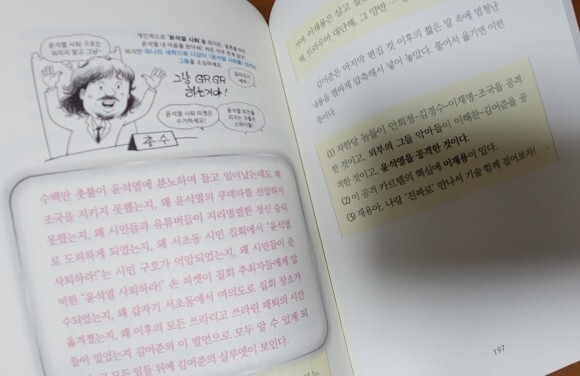 개인적으로 "윤석열 사퇴"를 외치든, 결혼을 하든
윤석열 내 마음을 받아줘! 하든 아무 문제 없다.
하지만 하나의 세력으로 다같이 '(윤석열 사퇴)' 외치면
그들을 조심하세요.
윤석열 사퇴 구호는
외치지 말고 그냥~
그냥 GR GR
하는거다!
갈라치기
세력!
윤석열 사퇴 피켓은
수거하세요!
윤석열 사퇴
외치는 수들은
스파이들!
총수
수백만 촛불이 윤석열에 분노하여 들고 일어났는데도 왜
조국을 지키지 못했는지, 왜 윤석열의 쿠데타를 진압하지
못했는지, 왜 시민들과 유튜버들이 지리멸렬한 정신 승리
로 도피하게 되었는지, 왜 서초동 시민 집회에서 "윤석열
사퇴하라!"는 시민 구호가 억압되었는지, 왜 시민들이 준
비한 "윤석열 사퇴하라!" 손 피켓이 집회 주최자들에게 압
수되었는지, 왜 갑자기 서초동에서 여의도로 집회 장소가
옮겨졌는지, 왜 이후의 모든 쓰라리고 쓰라린 패퇴의 시간
들이 있었는지 김어준의 이 발언으로 모두 알 수 있게 되
그 모든 일들 뒤에 김어준의 실루엣이 보인다.
거야. 이재용은 살고 싶
해. 트라우마 대단해. 그 양반
김어준은 마지막 편집 컷 이후의 짧은 말 속에 엄청난
내용을 결과적 압축해서 넣어 놓았다. 풀어서 옮기면 이런
주이다.
(1) 자한당 놈들이 안희정-김경수-이재명-조국을 공격
한 것이고, 외부의 그들 악마들이 이해찬-김어준을 공
격한 것이고, 윤석열을 공격한 것이다.
(2) 이 공격 카르텔의 핵심에 이재용이 있다.
(3) 재용아, 나랑 '진짜로' 만나서 기술 함께 걸어보자!
197